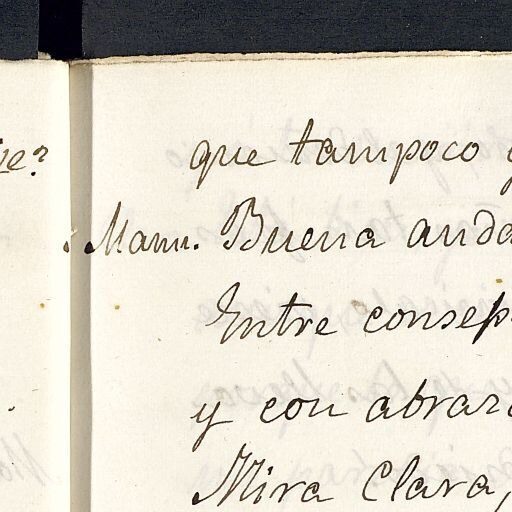 que tampoco
Manu. Buena anda
Entre consejo
y con abraza
Mira Clara,